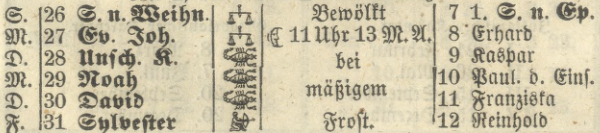 S. 26 S. n. Weihn. Bewölkt 7 1. S. n. Ep.
M. 27 Ev. Joh. ☾ 11 Uhr 13 M. A. 8 Erhard
D. 28 Unsch. K. bei 9 Kaspar
M. 29 Noah mäßigem 10 Paul. d. Eins.
D. 30 David 11 Franziska
F. 31 Sylvester Frost. 12 Reinhold